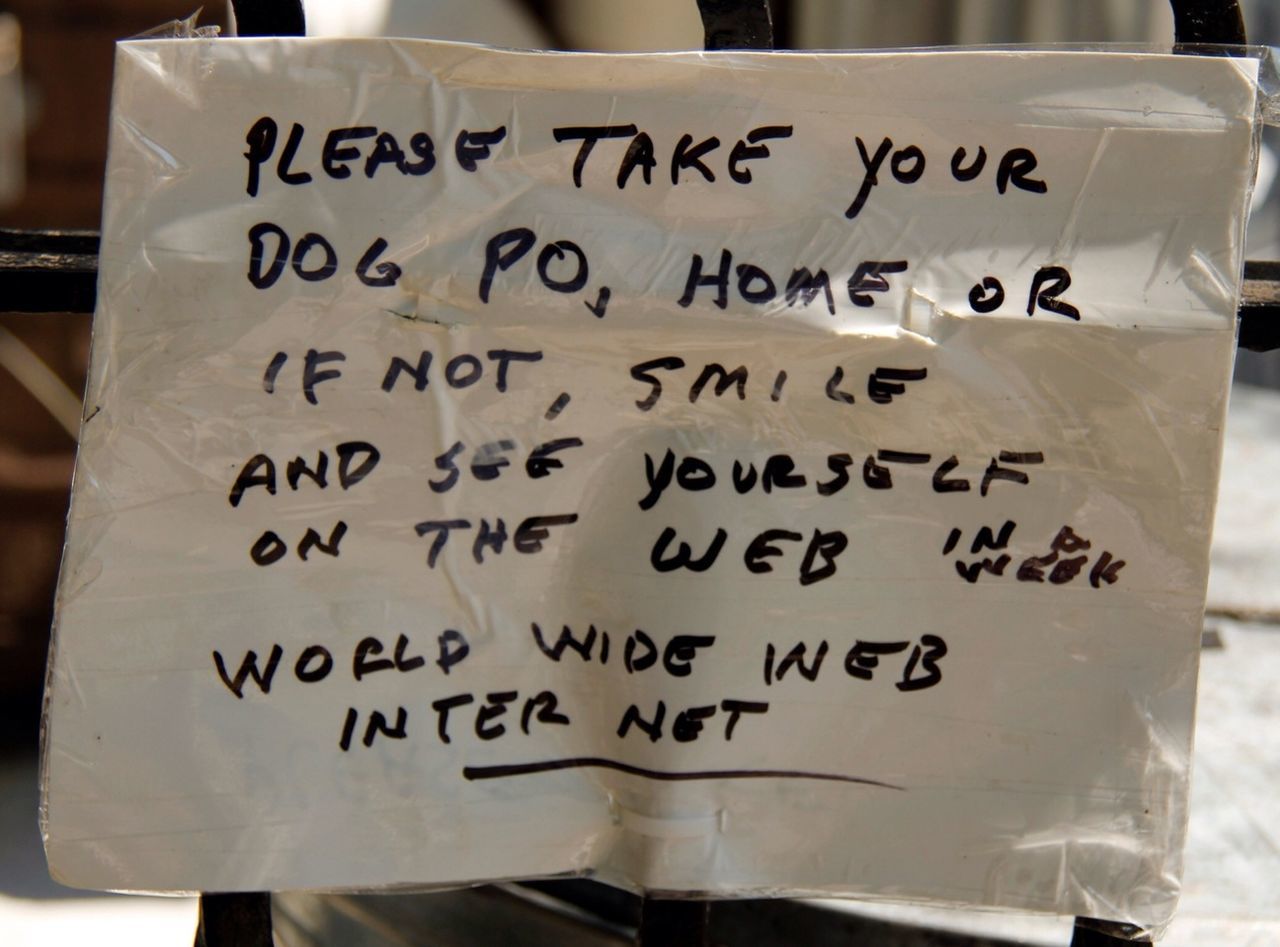 PLEASE TAKE YOUR
DOG PO, HOME OR
IF NOT, SMILE
AND SEE YOURSELF
ON THE WEB IN A
WEEK
WORLD WIDE WEB
INTER NET